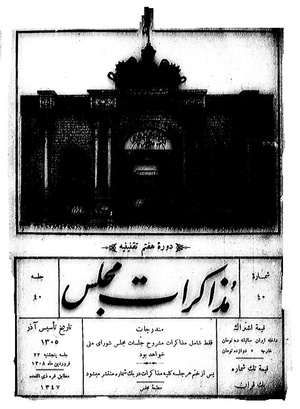 دورهٔ هفتم تقنینیه
شماره
۴۰
مذاکرات مجلس
جلسه
۴۰
قیمت اشتراک
داخله ایران سالیانه ده تومان
خارجه » دوازده تومان
قیمت تک شماره
یک قران
مندرجات
فقط شامل مذاکرات مشروح جلسات مجلس شورای ملی
خواهد بود
پس از ختم هر جلسه کلیه مذاکرات در یک شماره منتشر میشود
مطبعهٔ مجلس
تاریخ تأسیس آذر
۱۳۰۵
جلسه پنجشنبه ۲۲
فروردین ماه ۱۳۰۸
مطابق غره ذی القعده
۱۳۴۷